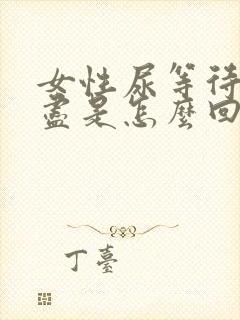 女性尿等待
盡是怎麼回
丁臺